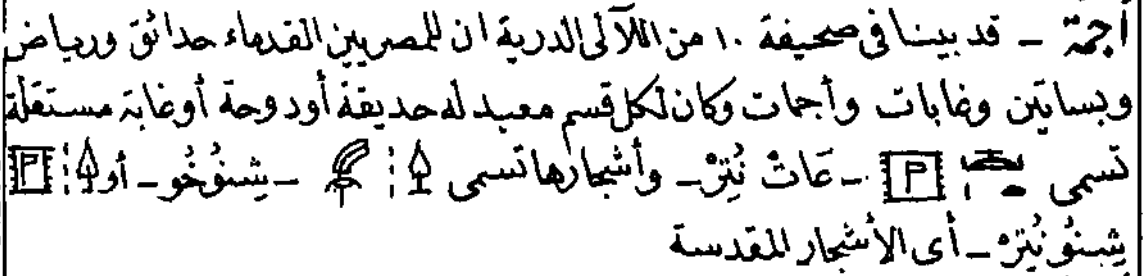 أجمّة – قد بينا فى صحيفة ١٠ من اللآلى الدرية ان للمصريين القدماء حدائق ورياض
وبساتين وغابات وأجمات وكان لكل قسم معبد له حديقة أو دوحة أو غابة مستقلة
تسمى – عَاتْ نُتِرْ – وأشجارها تسمى – شِنُوخُو – أو
شِنُو نُتِرْ – أى الأشجار المقدسة